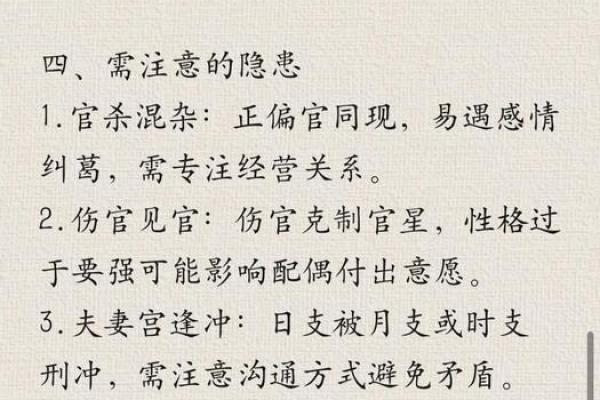 四、需注意的隐患
1.官杀混杂：正偏官同现，易遇感情
纠葛，需专注经营关系。
2.伤官见官：伤官克制官星，性格过
于要强可能影响配偶付出意愿。
3.夫妻宫逢冲：日支被月支或时支
刑冲，需注意沟通方式避免矛盾。